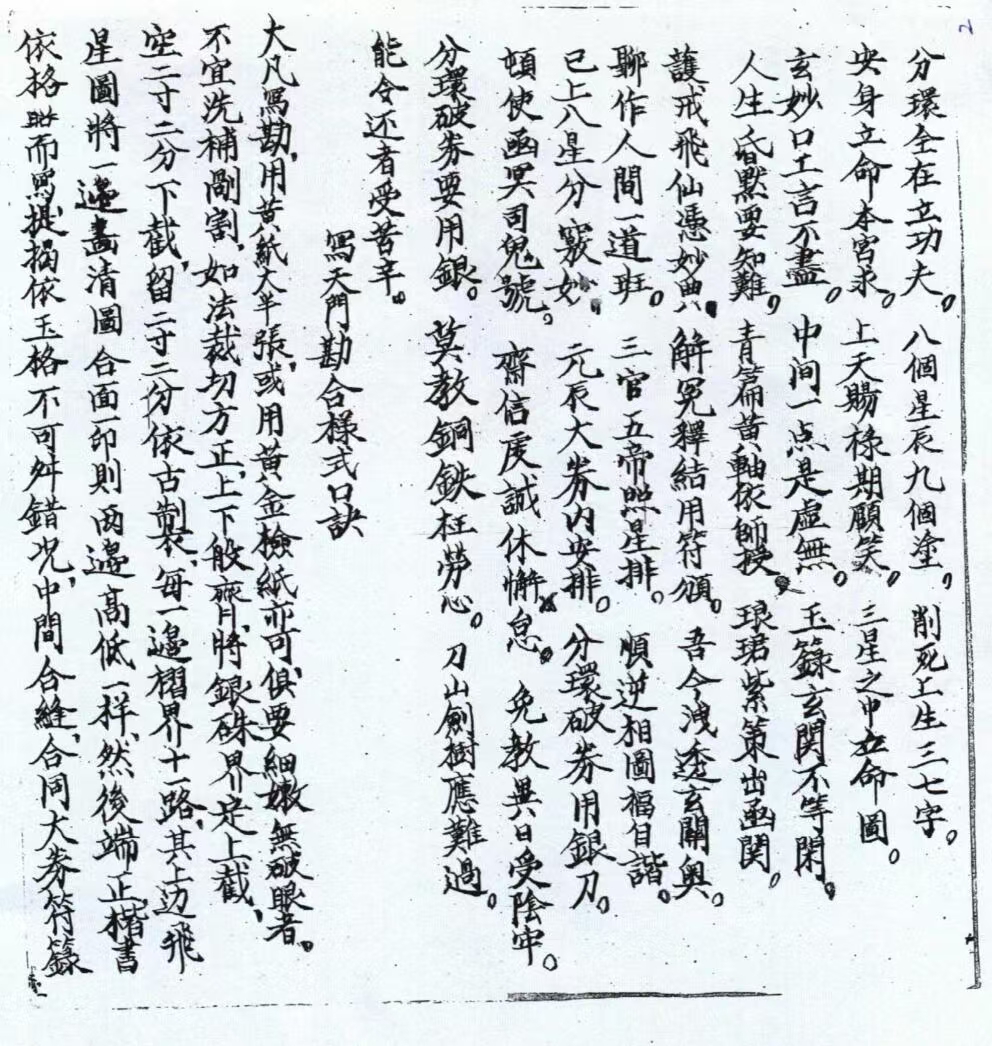 2
分環全在立功夫。八個星辰九個塗。削死上生三七字。
安身立命本宮求。上天賜祿期顧笑。三星之中立命圖。
玄妙口工言不盡。中间一点是虛無。玉籙玄関不等閑。
人生昏默要知難。青篇黄軸依師授。琅珺紫策出函関。
護戒飛仙憑妙典。解冤釋結用符頒。吾今洩透玄關奥。
聊作人間一道班。三官五帝照星排。順逆相圖福自諧。
已上八星分竅妙。元辰大券内安排。分環破券用銀刀。
頓使函冥司鬼號。齋信虔誠休懈怠。免教異日受陰牢。
分環破券要用銀。莫教銅鉄枉劳心。刀山劍樹應難過。
能令还者受苦辛。
寫天門勘合樣式口訣
大凡寫勘,用黄紙大半張,或用黄金檢紙亦可,俱要細嫩無破眼者。
不宜洗補剮割,如法裁切方正,上下般齊,將銀硃界定上截,
空二寸二分下截,留二寸二分,依古制裝,每一邉摺界十一路,其上边飛
星圖將一邉畫清圖合面一印則两邉高低一样,然後端正楷書
依格式而寫,提搨依玉格不可舛錯,况中間合縫,合同大券符籙